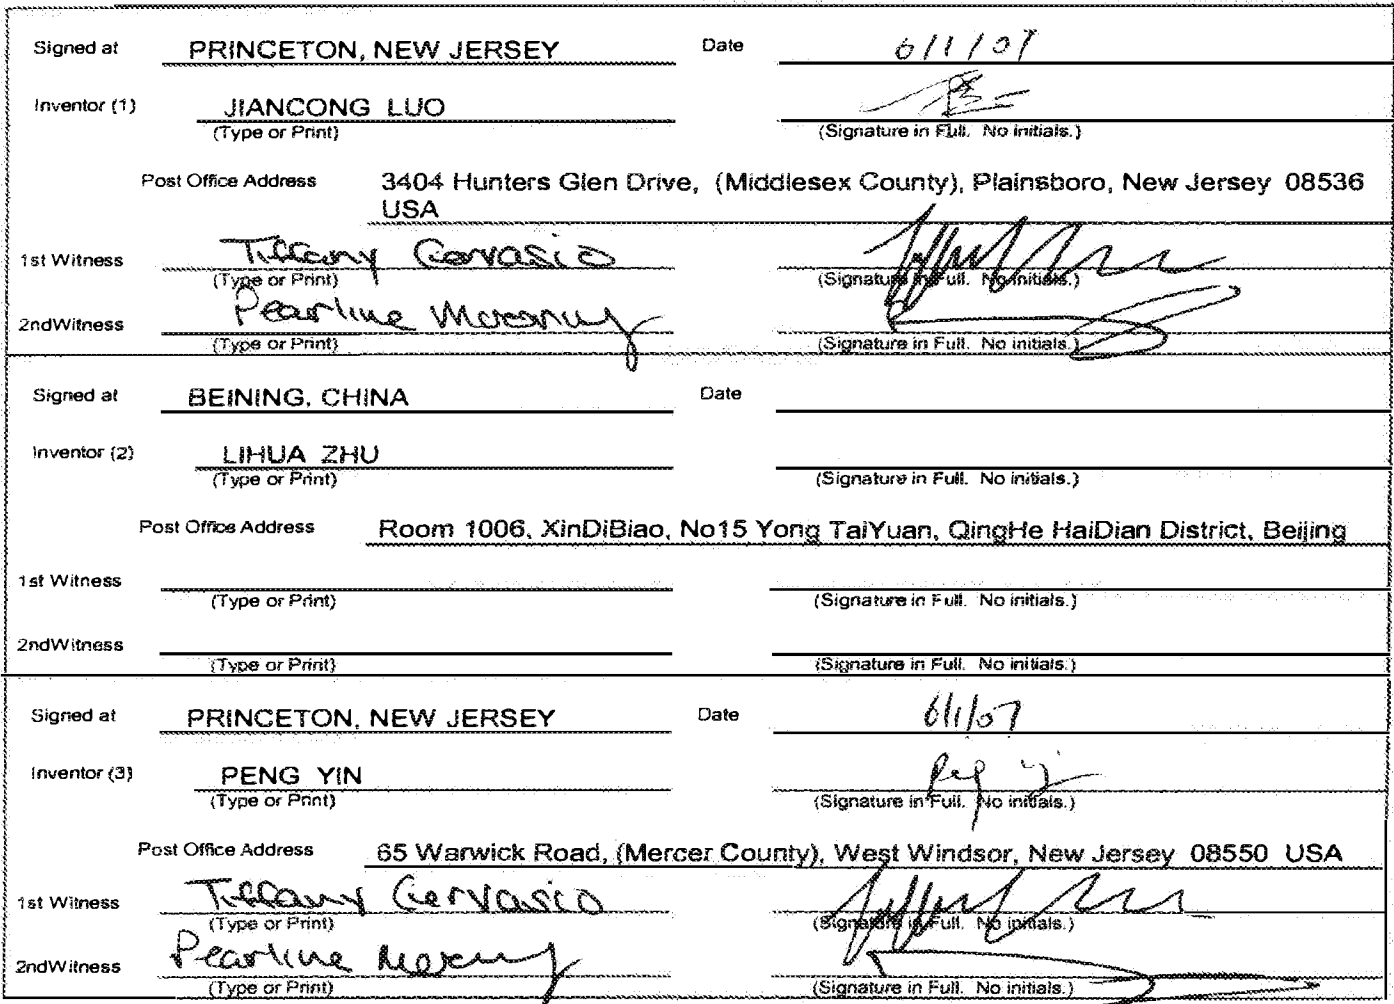 Signed at PRINCETON, NEW JERSEY Date 6/1/07
Inventor (1) JIANCONG LUO
(Type or Print) (Signature in Full. No initials.)
Post Office Address 3404 Hunters Glen Drive, (Middlesex County), Plainsboro, New Jersey 08536
USA
1st Witness Tiffany Gervasio
(Type or Print) (Signature in Full. No initials.)
2ndWitness Pearline
(Type or Print) (Signature in Full. No initials.)
Signed at BEINING, CHINA Date
Inventor (2) LIHUA ZHU
(Type or Print) (Signature in Full. No initials.)
Post Office Address Room 1006, XinDiBiao, No15 Yong TaiYuan, QingHe HaiDian District, Beijing
1st Witness
(Type or Print) (Signature in Full. No initials.)
2ndWitness
(Type or Print) (Signature in Full. No initials.)
Signed at PRINCETON, NEW JERSEY Date 6/1/07
Inventor (3) PENG YIN
(Type or Print) (Signature in Full. No initials.)
Post Office Address 65 Warwick Road, (Mercer County), West Windsor, New Jersey 08550 USA
1st Witness Tiffany Gervasio
(Type or Print) (Signature in Full. No initials.)
2ndWitness Pearline
(Type or Print) (Signature in Full. No initials.)